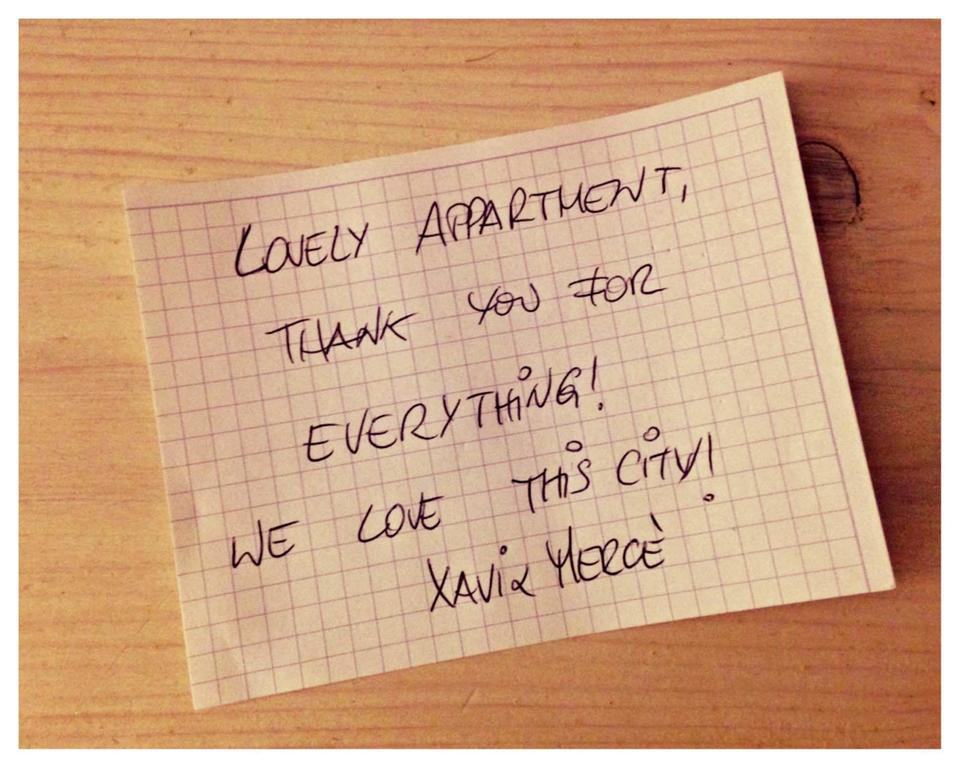 LOVELY APPARTMENT,
THANK YOU FOR
EVERYTHING!
WE LOVE THIS CITY!
XAVI & MERCÈ